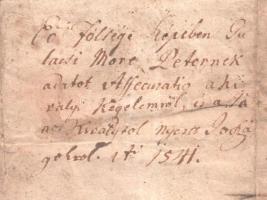 Eö Fölsége Képiben Gu
lacsi More Peternek
adatot Assecuratio a Ki
rályi Kegelemröl, és a Já
nos Királytol nyert Joszá
gokrol. 1541.